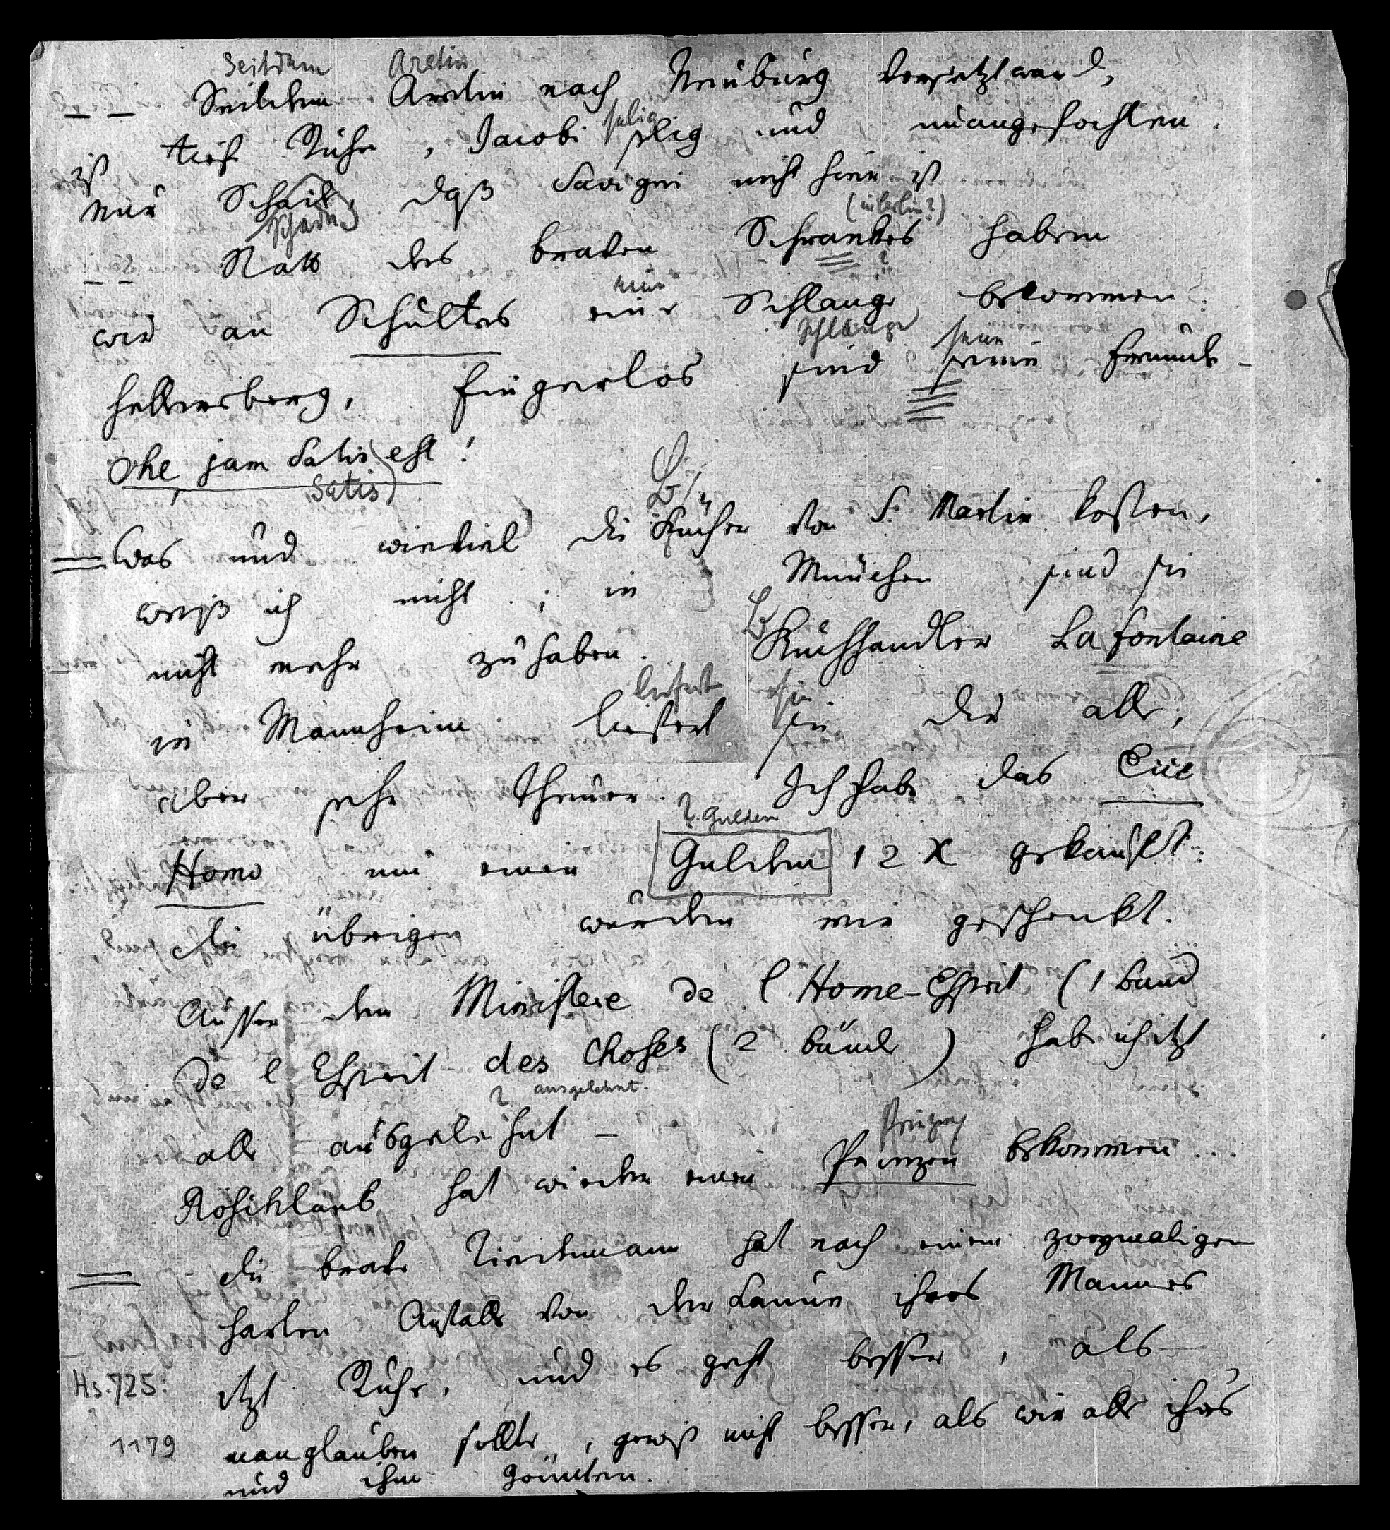 Seitdem Aretin
— — Seitdem Aretin nach Neuburg versetzt ward,
ist tiefe Ruhe, Jacobi selig und unangefochten.
selig
nur Schade, daß Savigni nicht hier ist
Schade
(in Berlin?)
— — Statt des braven Schrankes haben
wir an Schultes eine Schlange bekommen.
nur
Schlange seine
Hellersberg, Fingerlos sind seine Freunde –
Ohe, jam Satis est!
Satis
B
= Was und wieviel die Bücher von S. Martin kosten,
weiß ich nicht; in München sind sie
nicht mehr zu haben. Buchhandler La fontaine
B
liefert sie
in Mannheim liefert sie dir alle,
aber sehr theuer. Ich habe das Ecce
? Gulden
Homo um einen Gulden 12 x gekauft:
die übrigen wurden mir geschenkt.
Ausser dem Ministere de l Home-Esprit (1 band
de l Esprit des choses (2 bände) hab ich itzt
? ausgelehnt.
alle ausgelehnt —
Prinzen
Röschlaub hat wieder einen Prinzen bekommen...
= die brave Tiedemann hat nach einem zweymaligen
harten Anfalle von der Laune ihres Mannes
itzt Ruhe, und es geht besser, als
man glauben sollte, gewiß nicht besser, als wir alle ihr es
und ihm gönnten.
Hs. 725:
1179